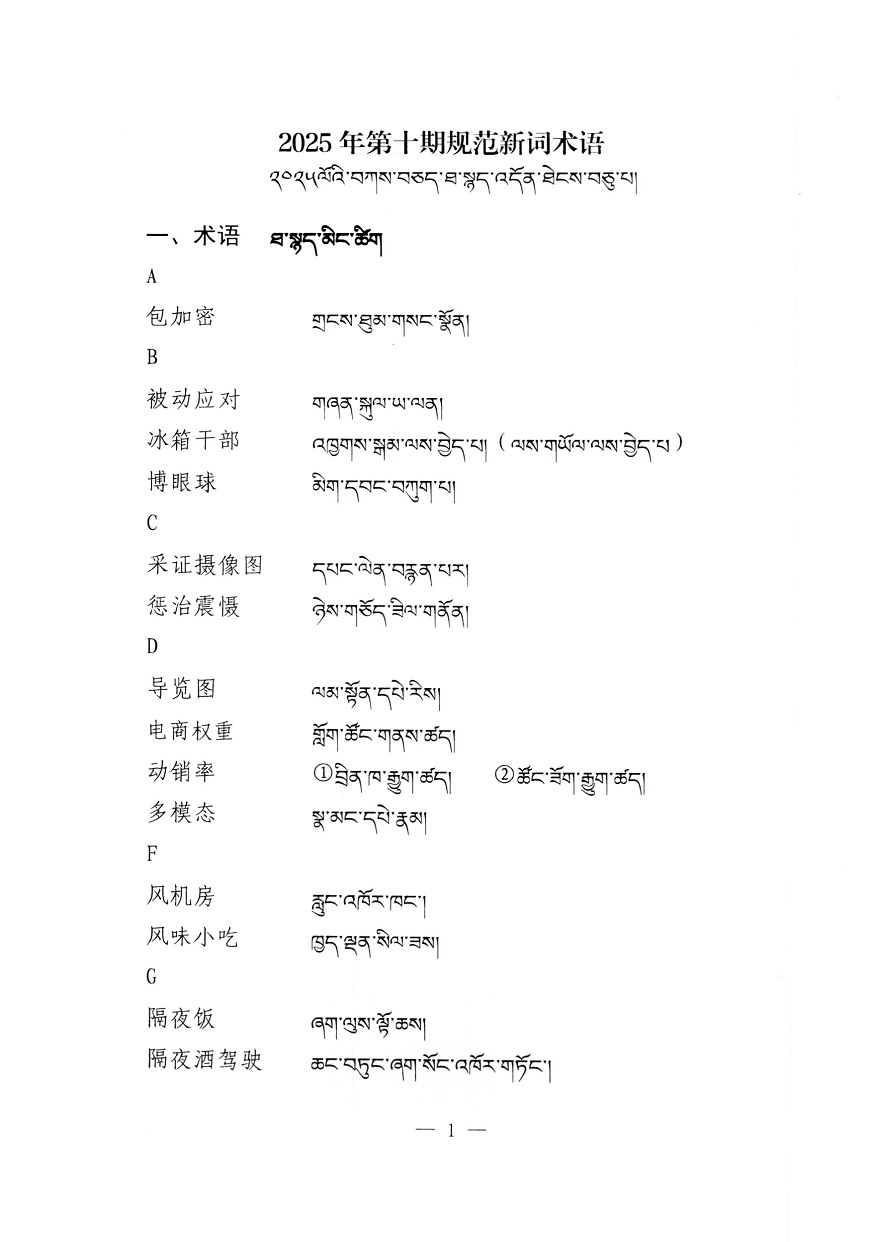 2025 年第十期规范新词术语
༢༠༢༥ལོའི་བཀས་བཅད་ཐ་སྙད་འདོན་ཐེངས་བཅུ་པ།
一、术语 ཐ་སྙད་མིང་ཚིག
A
包加密 གྲངས་ཐུམ་གསང་སྣོན།
B
被动应对 གཞན་སྐུལ་ཡ་ལན།
冰箱干部 འཁྱགས་སྒམ་ལས་བྱེད་པ། ( ལས་གཡོལ་ལས་བྱེད་པ )
博眼球 མིག་དབང་བཀུག་པ།
C
采证摄像图 དཔང་ལེན་བརྙན་པར།
惩治震慑 ཉེས་གཅོད་ཟིལ་གནོན།
D
导览图 ལམ་སྟོན་དཔེ་རིས།
电商权重 གློག་ཚོང་གནས་ཚད།
动销率 ①བྲིན་ཁ་རྒྱུག་ཚད། ②ཚོང་ཟོག་རྒྱུག་ཚད།
多模态 སྣ་མང་དཔེ་རྣམ།
F
风机房 རླུང་འཁོར་ཁང་།
风味小吃 ཁྱད་ལྡན་སིལ་ཟས།
G
隔夜饭 ཞག་ལུས་ལྟོ་ཆས།
隔夜酒驾驶 ཆང་བཏུང་ཞག་སོང་འཁོར་གཏོང་།
— 1 —